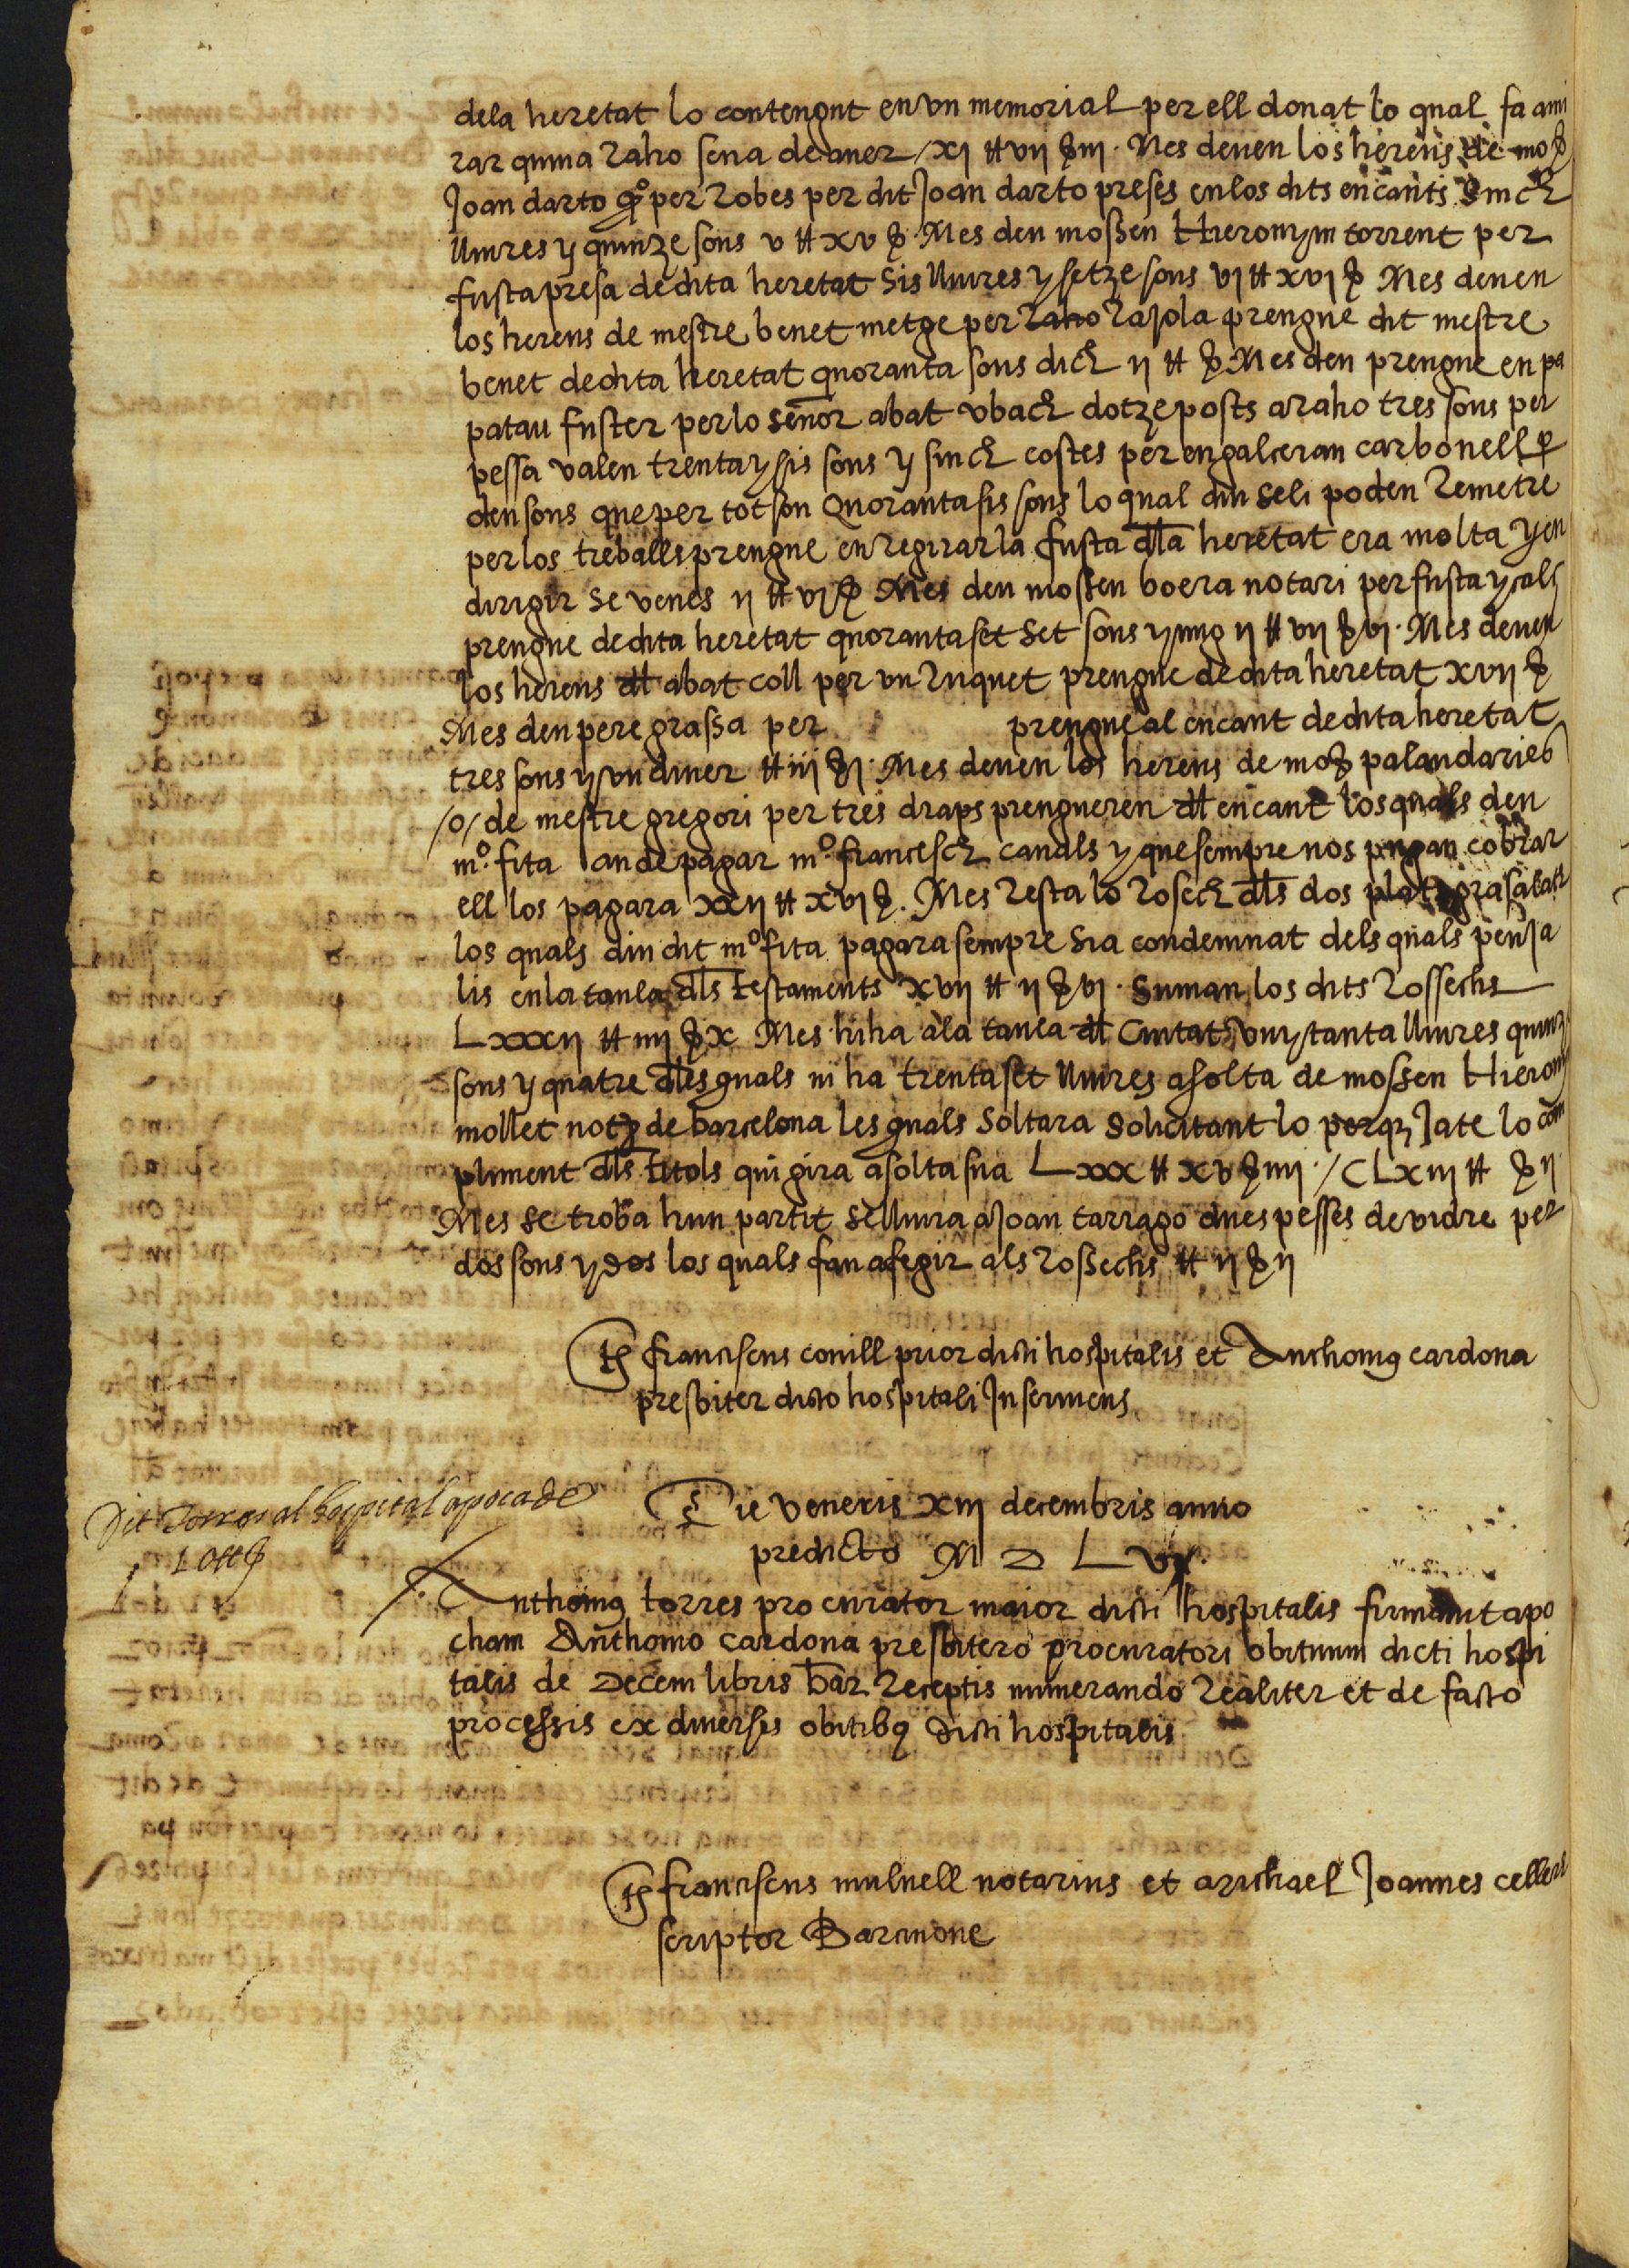 dela heretat lo contengut en vn memorial per ell donat lo qual fa ami
rar quina raho sera de auer / xj ℔ vij ß iij · Mes deuen los hereus de moß
Joan darto qº per robes per dit Joan darto preses en los dits encants Sinch
lliures y quinze sous v ℔ xv ß · Mes deu mossen Hieronym torrent per
fusta presa de dita heretat Sis lliures y setze sous vj ℔ xvj ß Mes deuen
los hereus de mestre benet metge per raho rajola prengue dit mestre
benet de dita heretat quoranta sous dich ij ℔ ß Mes deu prengue en pa
patau fuster per lo señor abat vbach dotze posts a raho tres sous per
pessa valen trenta y sis sous y sinch costes per en galceran carbonell per
deu sous que per tot son Quoranta sis sous lo qual diu seli poden remetre
per los treballs prengue en regirar la fusta dla heretat era molta y en
dirigir se venes ij ℔ vj ß Mes deu mossen boera notari per fusta y als
prengue de dita heretat quoranta set Set sous y mig ij ℔ vij ß vj · Mes deuen
los hereus dl abat coll per vn ruquet prengue de dita heretat xvij ß
Mes deu pere grassa per prengue al encant de dita heretat
tres sous y vn diner ℔ iij ß j · Mes deuen los hereus de moß palandaries
/o/ de mestre gregori per tres draps prengueren dl encant los quals deu
mº. fita an de pagar mº. francesch canals y que sempre nos pugan cobrar
ell los pagara xxij ℔ xvj ß. Mes resta lo rosech dls dos
los quals diu dit mº fita pagara sempre sia condemnat dels quals penja
lis en la taula dls testaments xvij ℔ ij ß vj · Suman los dits rossechs
Lxxxij ℔ iiij ß x Mes hi ha a la taula dl Ciutat vuytanta lliures quinz
sous y quatre dles quals ni ha trenta set lliures a solta de mossen Hierony
mollet notʒ de barcelona les quals Soltara Solicitant lo perq, jate lo com
pliment dls titols qui gira a solta sua Lxxx ℔ xv ß iiij · / CLxiij ℔ ß ij
Mes se troba hun partit se lliura a Joan tarrago dues pesses de vidre per
dos sous y dos los quals fan afegir als rossechs ℔ ij ß ij
Ts franciscus conill prior dicti hospitalis et Anthonius cardona
presbiter dicto hospitali Inseruiens
Die veneris xiij decembris anno
predicto M D L vj.
Dit Torres al hospital apoca de
10 ℔ ß
Anthonius torres procurator maior dicti hospitalis firmauit apo
cham Anthonio cardona presbitero procuratori obituum dicti hospi
talis de Decem libris bar. receptis numerando realiter et de facto
processis ex diuersis obitibus dicti hospitalis
Ts franciscus mulnell notarius et michael Joannes cellers
scriptor Barcinone